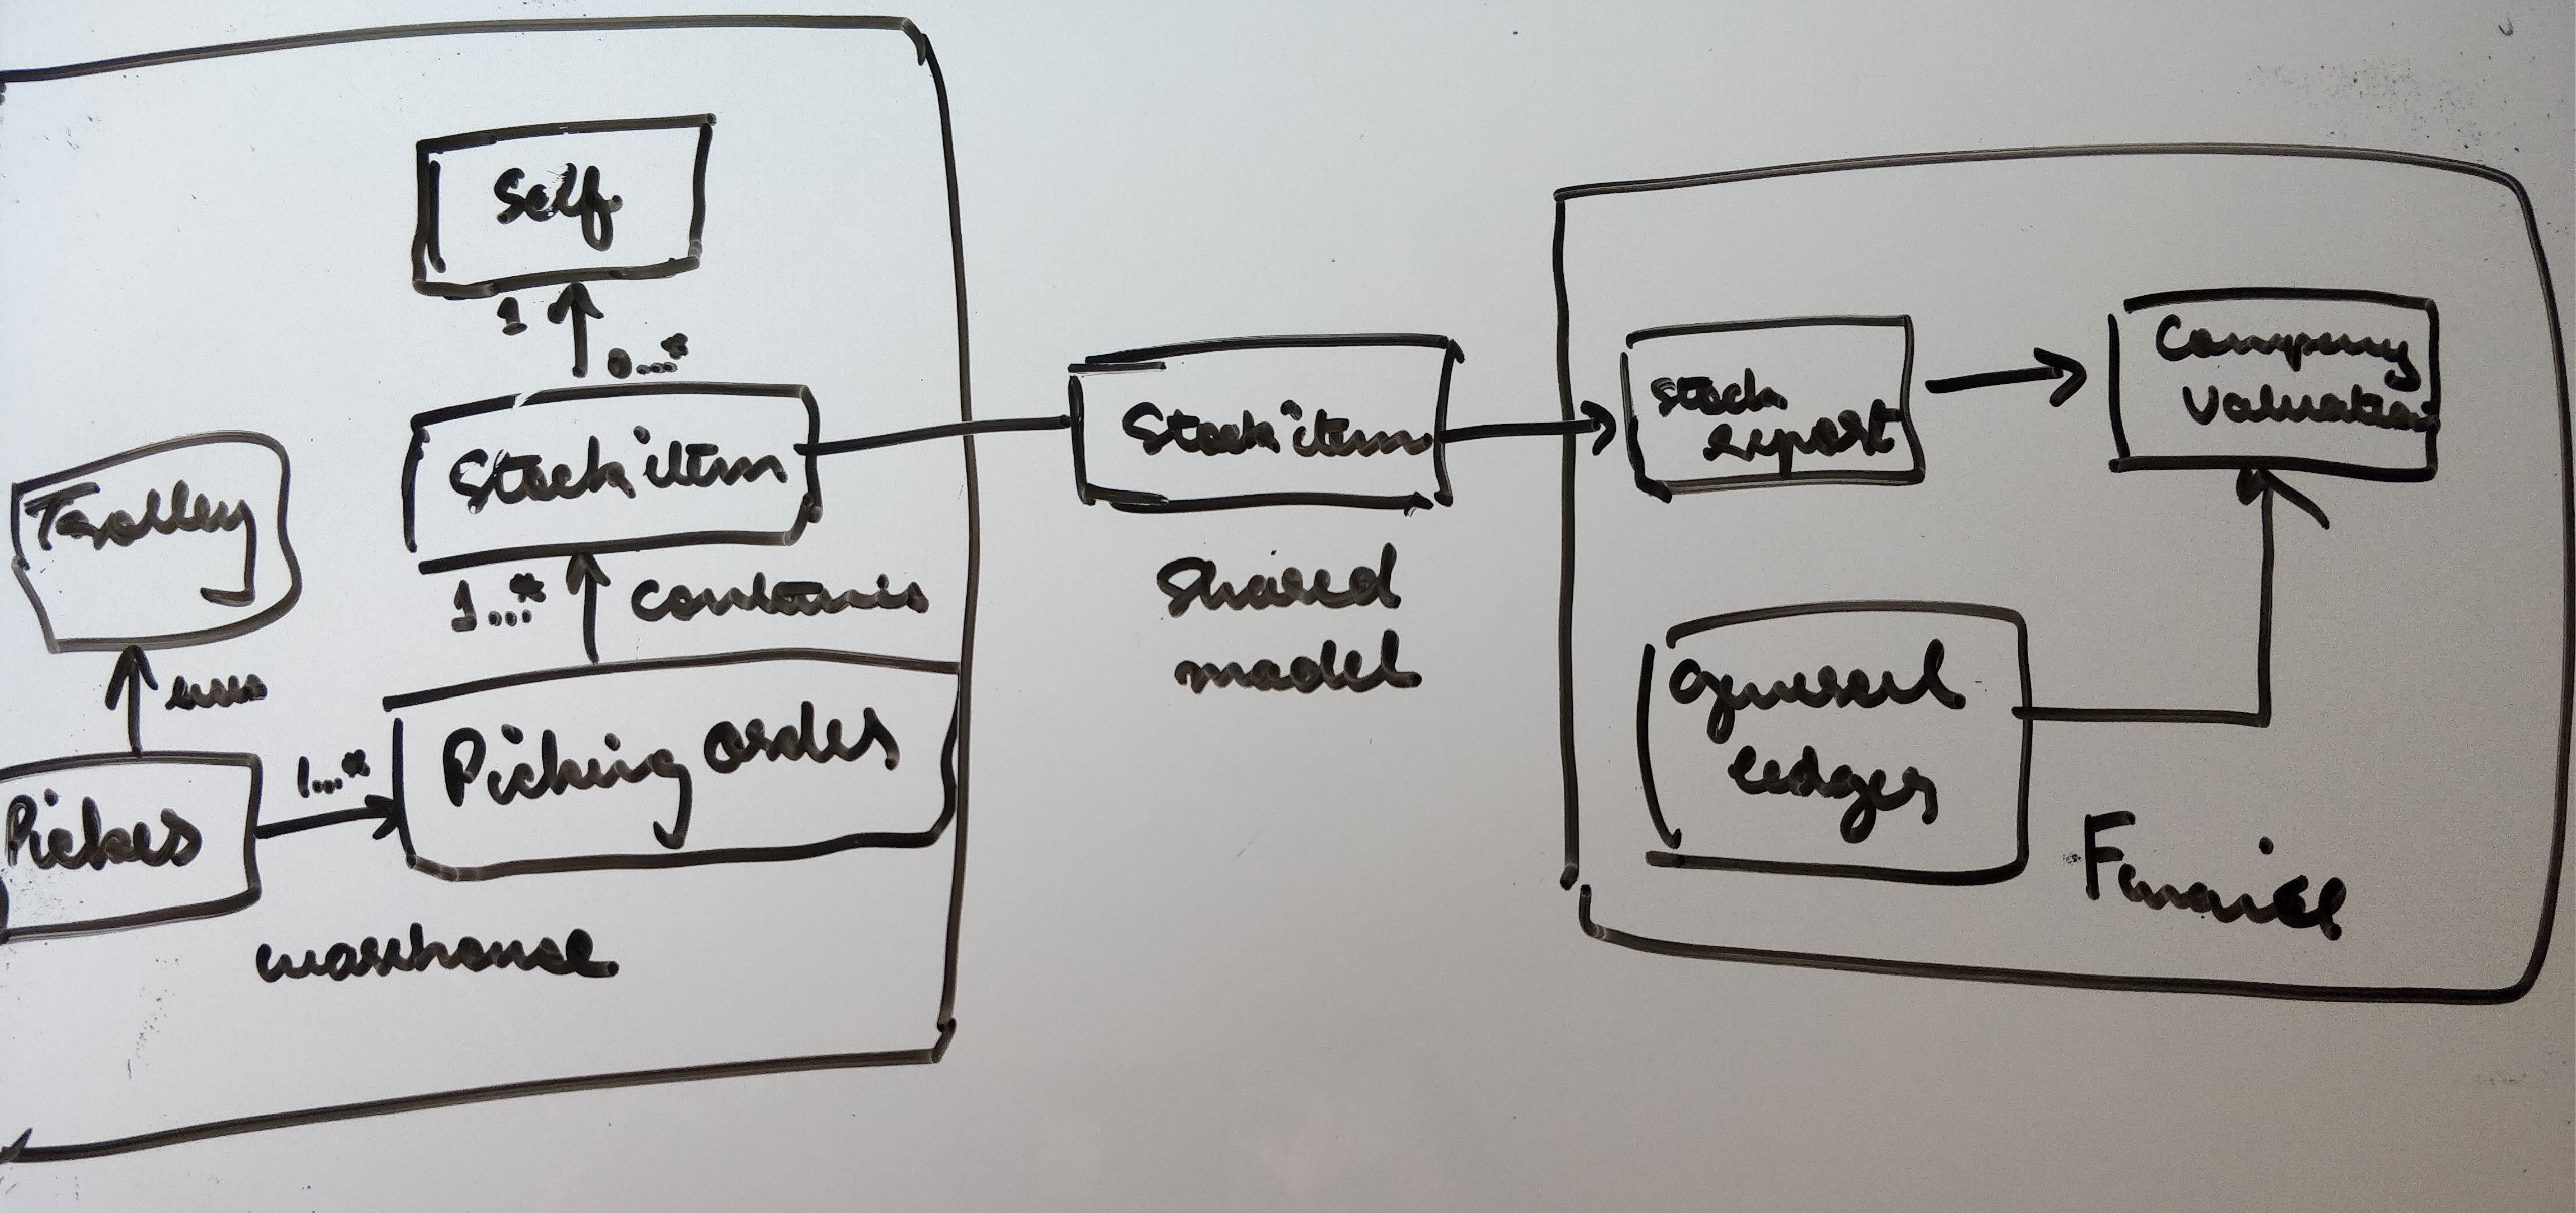 Self
1
0...*
Stock item
Trolley
1...*
contains
uses
Picker
1...*
Picking order
warehouse
Stock item
Shared
model
Stock
report
Company
Valuation
General
ledger
Finance